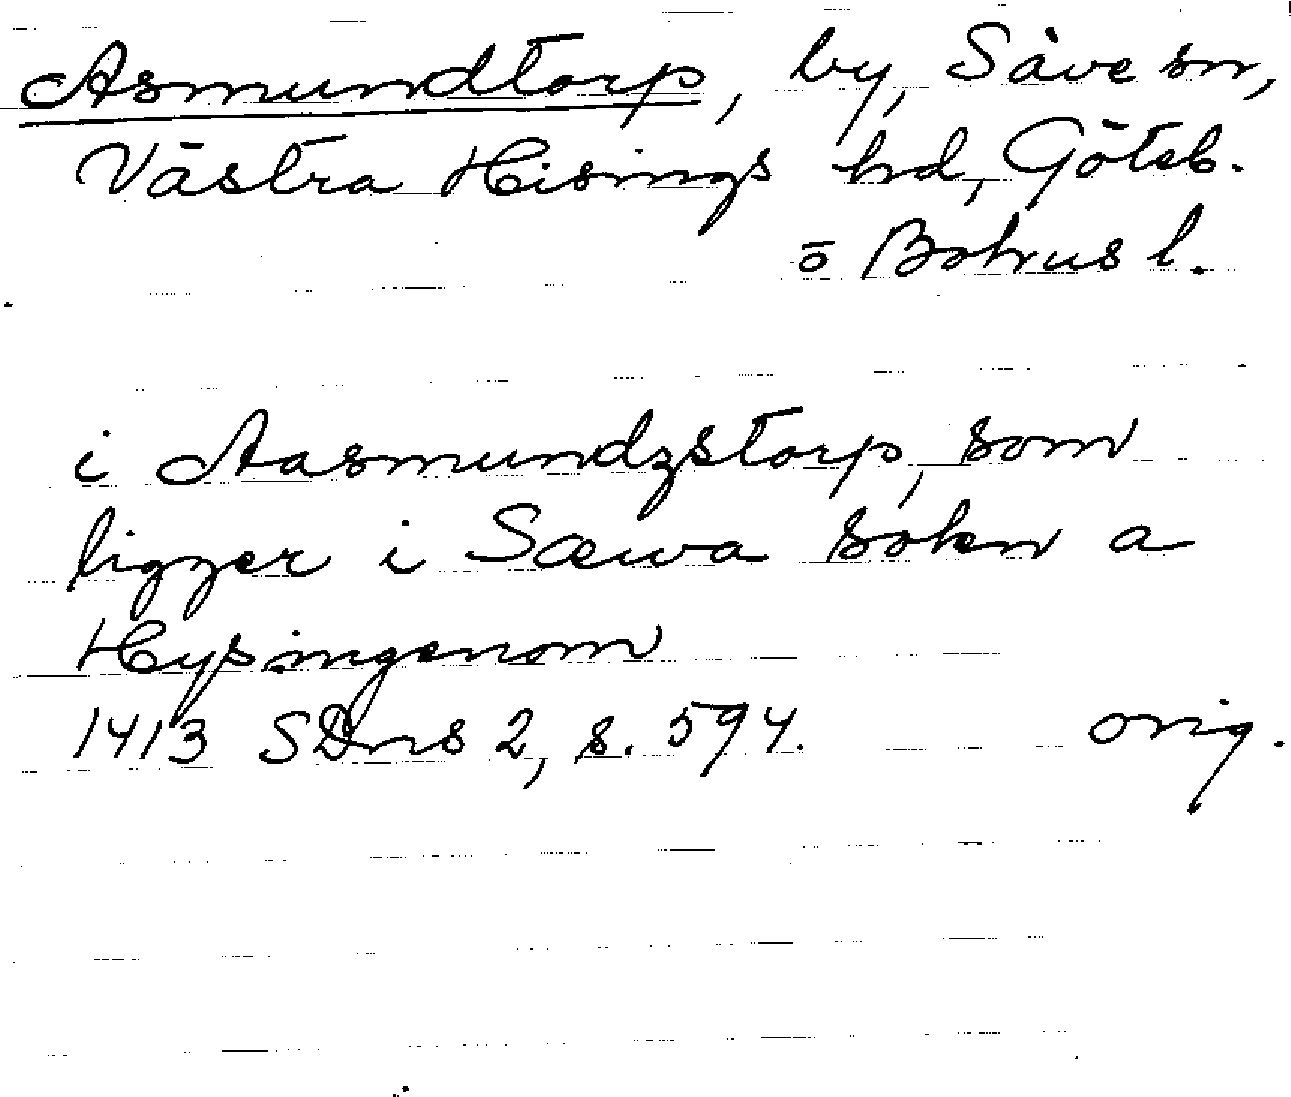 Asmundtorp, by, Säve sn,
Västra Hisings hd, Göteb.
o Bohus l.
i Aasmundzstorp, som
ligger i Sæwa sokn a
Hysingenom
1413 SDns 2, s. 594. orig.